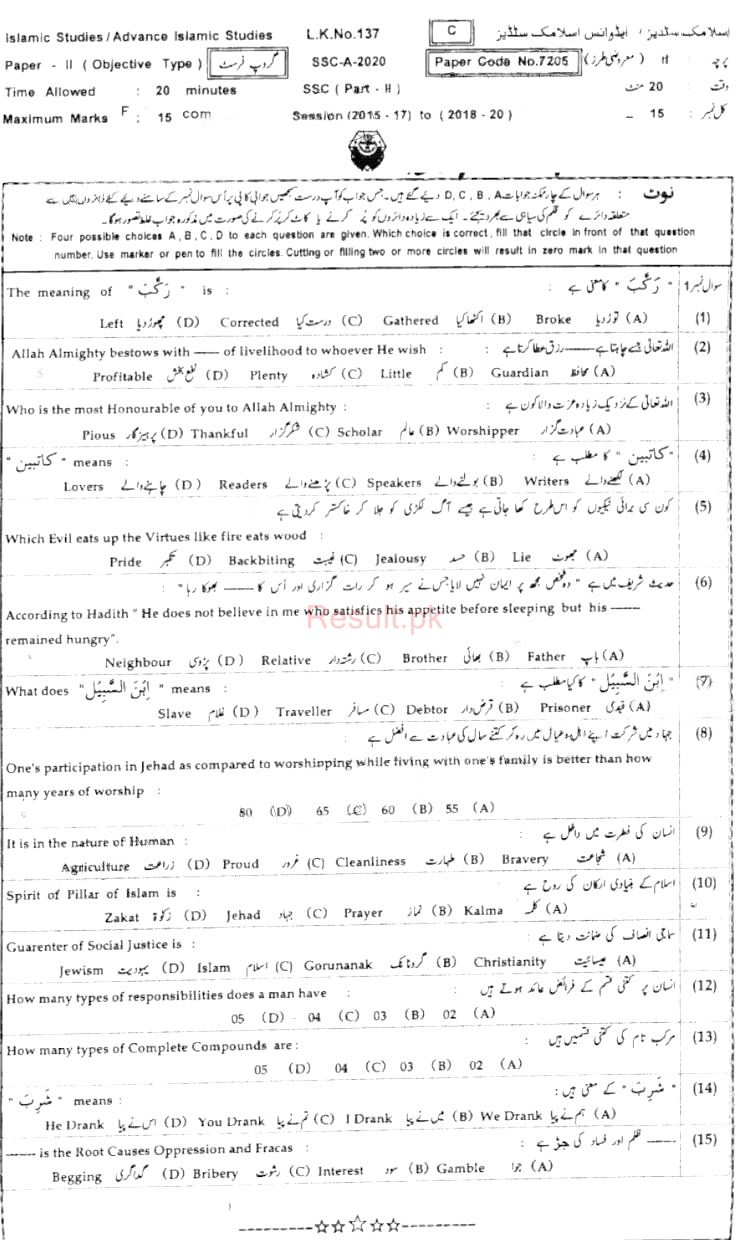 Islamic Studies/Advance Islamic Studies L.K.No.137 C اسلامک سٹڈیز / ایڈوانس اسلامک سٹڈیز
Paper - II ( Objective Type ) گروپ فرسٹ SSC-A-2020 Paper Code No.7205 (معروضی طرز) II : پرچہ
Time Allowed : 20 minutes SSC ( Part - II ) وقت : 20 منٹ
Maximum Marks F : 15 com Session (2015 - 17) to ( 2018 - 20 ) کل نمبر : 15
نوٹ : ہر سوال کے چار ممکنہ جوابات D, C, B, A دیے گئے ہیں۔ جس جواب کو آپ درست سمجھیں جوابی کاپی پر اُس سوال نمبر کے سامنے دیے گئے دائروں میں سے
متعلقہ دائرے کو قلم کی سیاہی سے بھر دیجئے۔ ایک سے زیادہ دائروں کو پُر کرنے یا کاٹ کر پُر کرنے کی صورت میں مذکورہ جواب غلط تصور ہوگا۔
Note : Four possible choices A , B , C , D to each question are given. Which choice is correct , fill that circle in front of that question
number. Use marker or pen to fill the circles. Cutting or filling two or more circles will result in zero mark in that question
The meaning of " رَكَّبَ " is : " رَكَّبَ " کا معنی ہے : سوال نمبر 1
Left چھوڑ دیا (D) Corrected درست کیا (C) Gathered اکٹھا کیا (B) Broke توڑ دیا (A) (1)
Allah Almighty bestows with —— of livelihood to whoever He wish : اللہ تعالیٰ جسے چاہتا ہے —— رزق عطا کرتا ہے : (2)
Profitable نفع بخش (D) Plenty کشادہ (C) Little کم (B) Guardian محافظ (A)
Who is the most Honourable of you to Allah Almighty : اللہ تعالیٰ کے نزدیک زیادہ عزت والا کون ہے : (3)
Pious پرہیزگار (D) Thankful شکر گزار (C) Scholar عالم (B) Worshipper عبادت گزار (A)
" كاتبين " means : " كاتبين " کا مطلب ہے : (4)
Lovers چاہنے والے (D) Readers پڑھنے والے (C) Speakers بولنے والے (B) Writers لکھنے والے (A)
کون سی برائی نیکیوں کو اس طرح کھا جاتی ہے جیسے آگ لکڑی کو جلا کر خاکستر کر دیتی ہے (5)
Which Evil eats up the Virtues like fire eats wood :
Pride تکبر (D) Backbiting غیبت (C) Jealousy حسد (B) Lie جھوٹ (A)
حدیث شریف میں ہے " وہ شخص مجھ پر ایمان نہیں لایا جس نے سیر ہو کر رات گزاری اور اُس کا —— بھوکا رہا " : (6)
According to Hadith " He does not believe in me who satisfies his appetite before sleeping but his ——
Result.pk
remained hungry".
Neighbour پڑوسی (D) Relative رشتہ دار (C) Brother بھائی (B) Father باپ (A)
What does " اِبْنَ السَّبِيْلِ " means : " اِبْنَ السَّبِيْلِ " کا کیا مطلب ہے : (7)
Slave غلام (D) Traveller مسافر (C) Debtor قرض دار (B) Prisoner قیدی (A)
جہاد میں شرکت اپنے اہل و عیال میں رہ کر کتنے سال کی عبادت سے افضل ہے : (8)
One's participation in Jehad as compared to worshipping while living with one's family is better than how
many years of worship :
80 (D) 65 (C) 60 (B) 55 (A)
It is in the nature of Human : انسان کی فطرت میں داخل ہے : (9)
Agriculture زراعت (D) Proud غرور (C) Cleanliness طہارت (B) Bravery شجاعت (A)
Spirit of Pillar of Islam is : اسلام کے بنیادی ارکان کی روح ہے : (10)
Zakat زکوٰۃ (D) Jehad جہاد (C) Prayer نماز (B) Kalma کلمہ (A)
Guarenter of Social Justice is : سماجی انصاف کی ضمانت دیتا ہے : (11)
Jewism یہودیت (D) Islam اسلام (C) Gorunanak گرونانک (B) Christianity عیسائیت (A)
How many types of responsibilities does a man have : انسان پر کتنی قسم کے فرائض عائد ہوتے ہیں : (12)
05 (D) 04 (C) 03 (B) 02 (A)
How many types of Complete Compounds are : مرکب تام کی کتنی قسمیں ہیں : (13)
05 (D) 04 (C) 03 (B) 02 (A)
" شَرِبَ " means : " شَرِبَ " کے معنی ہیں : (14)
He Drank اس نے پیا (D) You Drank تم نے پیا (C) I Drank میں نے پیا (B) We Drank ہم نے پیا (A)
—— is the Root Causes Oppression and Fracas : —— ظلم اور فساد کی جڑ ہے : (15)
Begging گداگری (D) Bribery رشوت (C) Interest سود (B) Gamble جوا (A)